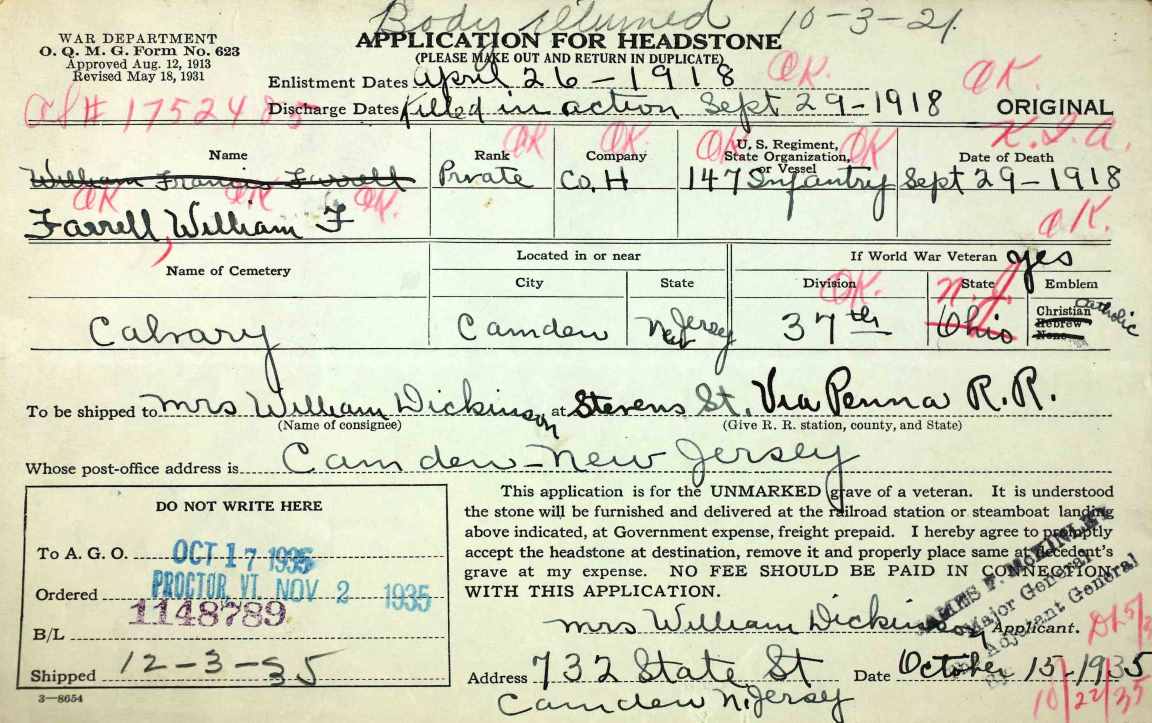 Body returned 10-3-21.
WAR DEPARTMENT
O. Q. M. G. Form No. 623
Approved Aug. 12, 1913
Revised May 18, 1931
APPLICATION FOR HEADSTONE
(PLEASE MAKE OUT AND RETURN IN DUPLICATE)
Enlistment Dates April 26-1918 OK. OK.
Discharge Dates Killed in action Sept 29-1918 ORIGINAL
K.I.A.
Name Rank OK Company OK. U. S. Regiment, State Organization, or Vessel OK OK Date of Death
William Francis Farrell Private Co. H 147 Infantry Sept 29-1918
OK OK OK.
Farrell, William F OK.
Name of Cemetery Located in or near If World War Veteran yes
City State Division OK. State N.J. Emblem
Calvary Camden New Jersey 37th Ohio Christian Catholic
Hebrew
None
To be shipped to Mrs William Dickinson at Stevens St. Via Penna R.R.
(Name of consignee) (Give R. R. station, county, and State)
Whose post-office address is Camden - New Jersey
DO NOT WRITE HERE
To A. G. O. OCT 17 1935
Ordered PROCTOR, VT. NOV 2 1935
1148789
B/L
Shipped 12-3-35
3-8654
This application is for the UNMARKED grave of a veteran. It is understood
the stone will be furnished and delivered at the railroad station or steamboat landing
above indicated, at Government expense, freight prepaid. I hereby agree to promptly
accept the headstone at destination, remove it and properly place same at decedent's
grave at my expense. NO FEE SHOULD BE PAID IN CONNECTION
WITH THIS APPLICATION.
JAMES F. McKINLEY
Major General
Adjutant General
Mrs William Dickinson, Applicant.
Address 732 State St Date October 15-1935
Camden N. Jersey 10/22/35